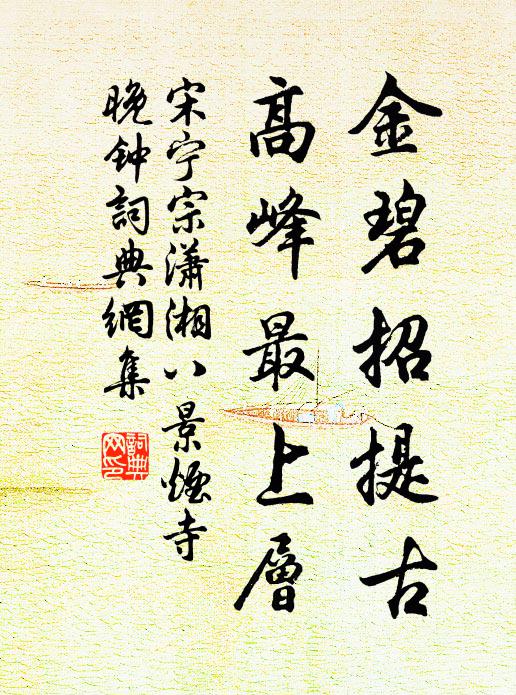 金碧招提古
高峰最上層
宋宁宗瀟湘八景煙寺
晚钟詞典網集
詞典
网印